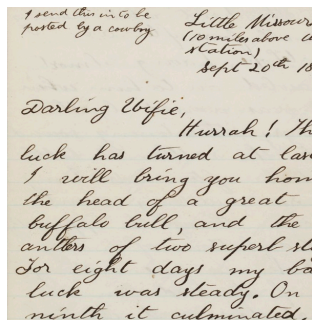 I send this in to be
posted by a cowboy
Little Missour
(10 miles above
station)
Sept 20th 18
Darling Wifie,
Hurrah! Th
luck has turned at las
I will bring you hom
the head of a great
buffalo bull, and the
antlers of two superb st
For eight days my ba
luck was steady. On
ninth it culminated,